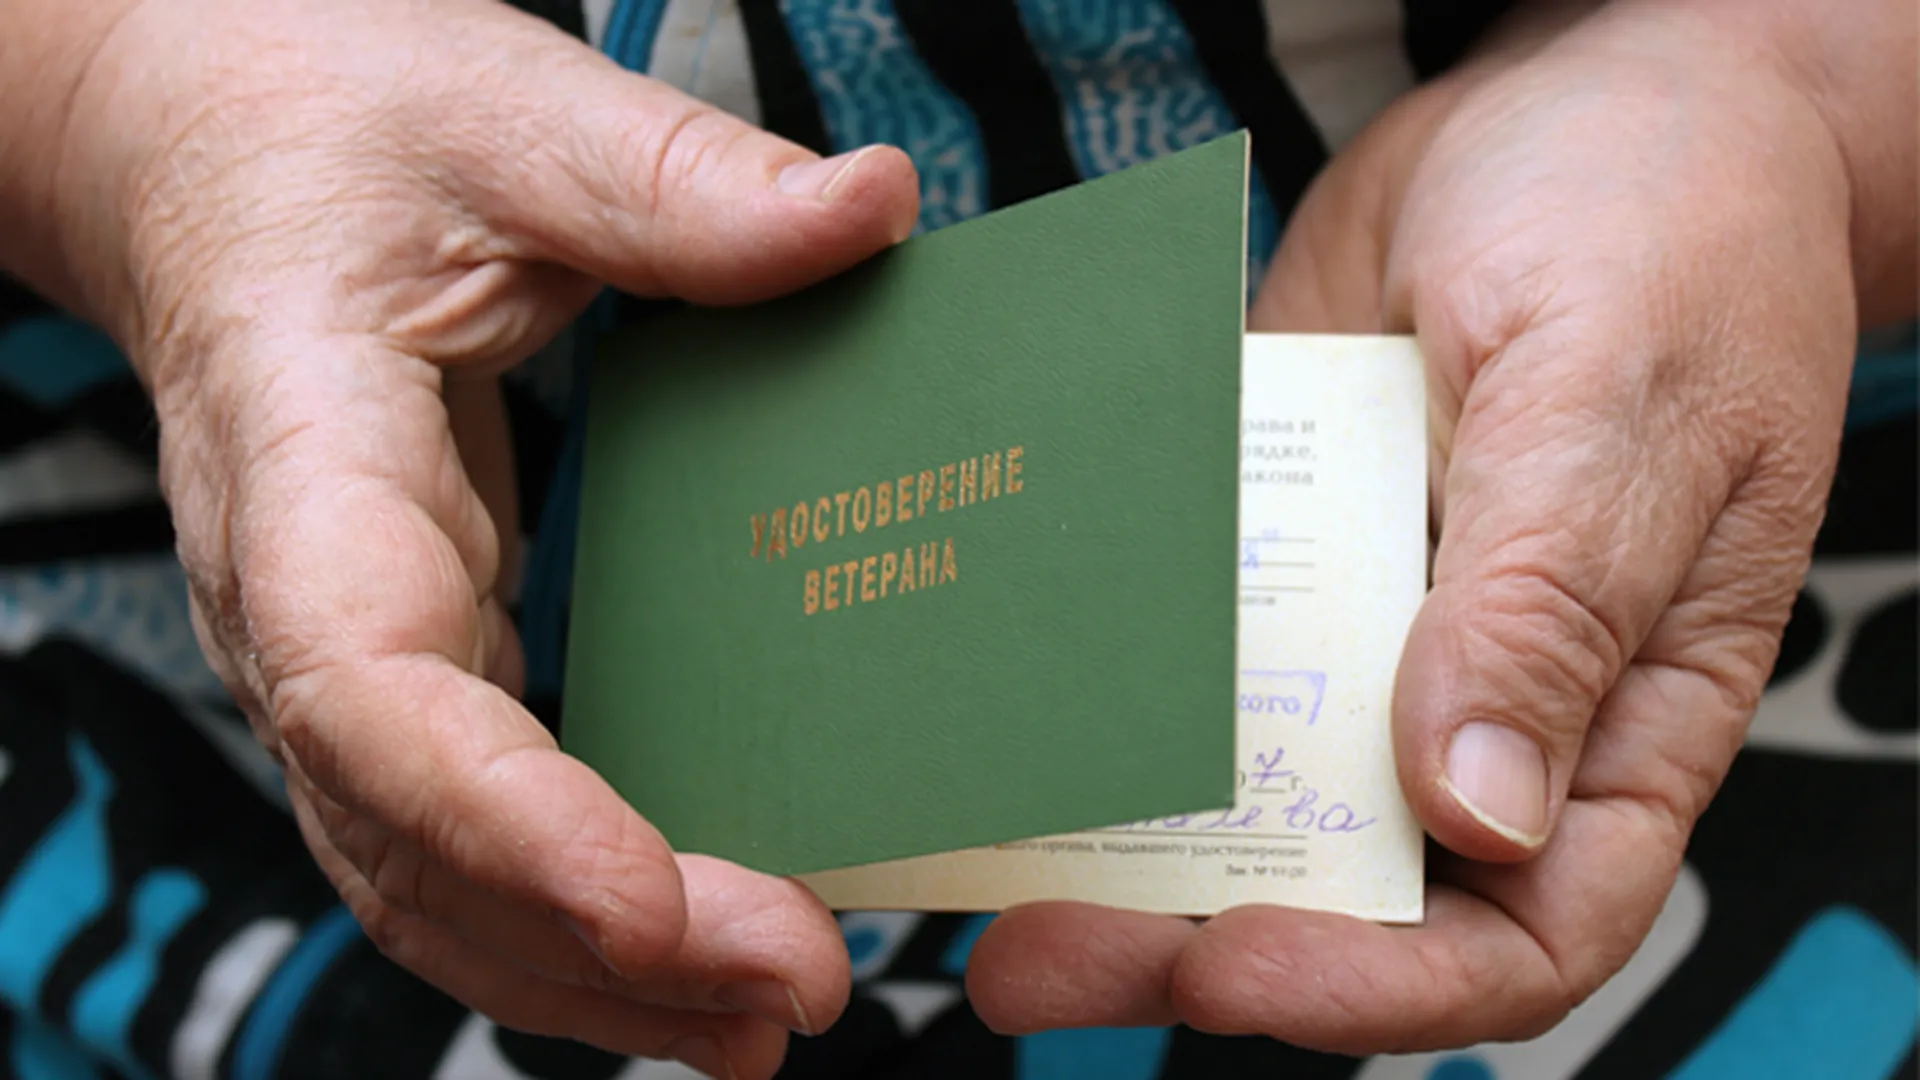 УДОСТОВЕРЕНИЕ
ВЕТЕРАНА
рава и
рядке,
акона
кого
7 г.
органа, выдавшего удостоверение
Зак. №